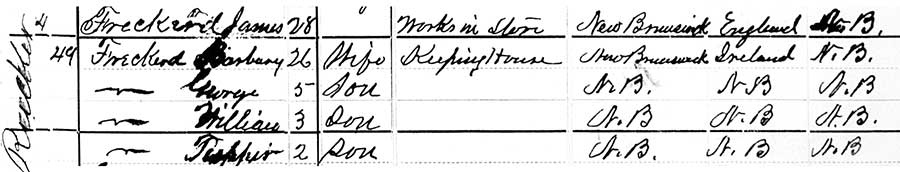 Freckerd James 28 Works in Store New Brunswick England N. B.
49 Freckerd Barbary 26 Wife Keeping House New Brunswick Ireland N. B.
" George 5 Son N. B. N B N. B
" William 3 Son N. B. N. B N. B.
" 2 Son N. B. N. B N. B